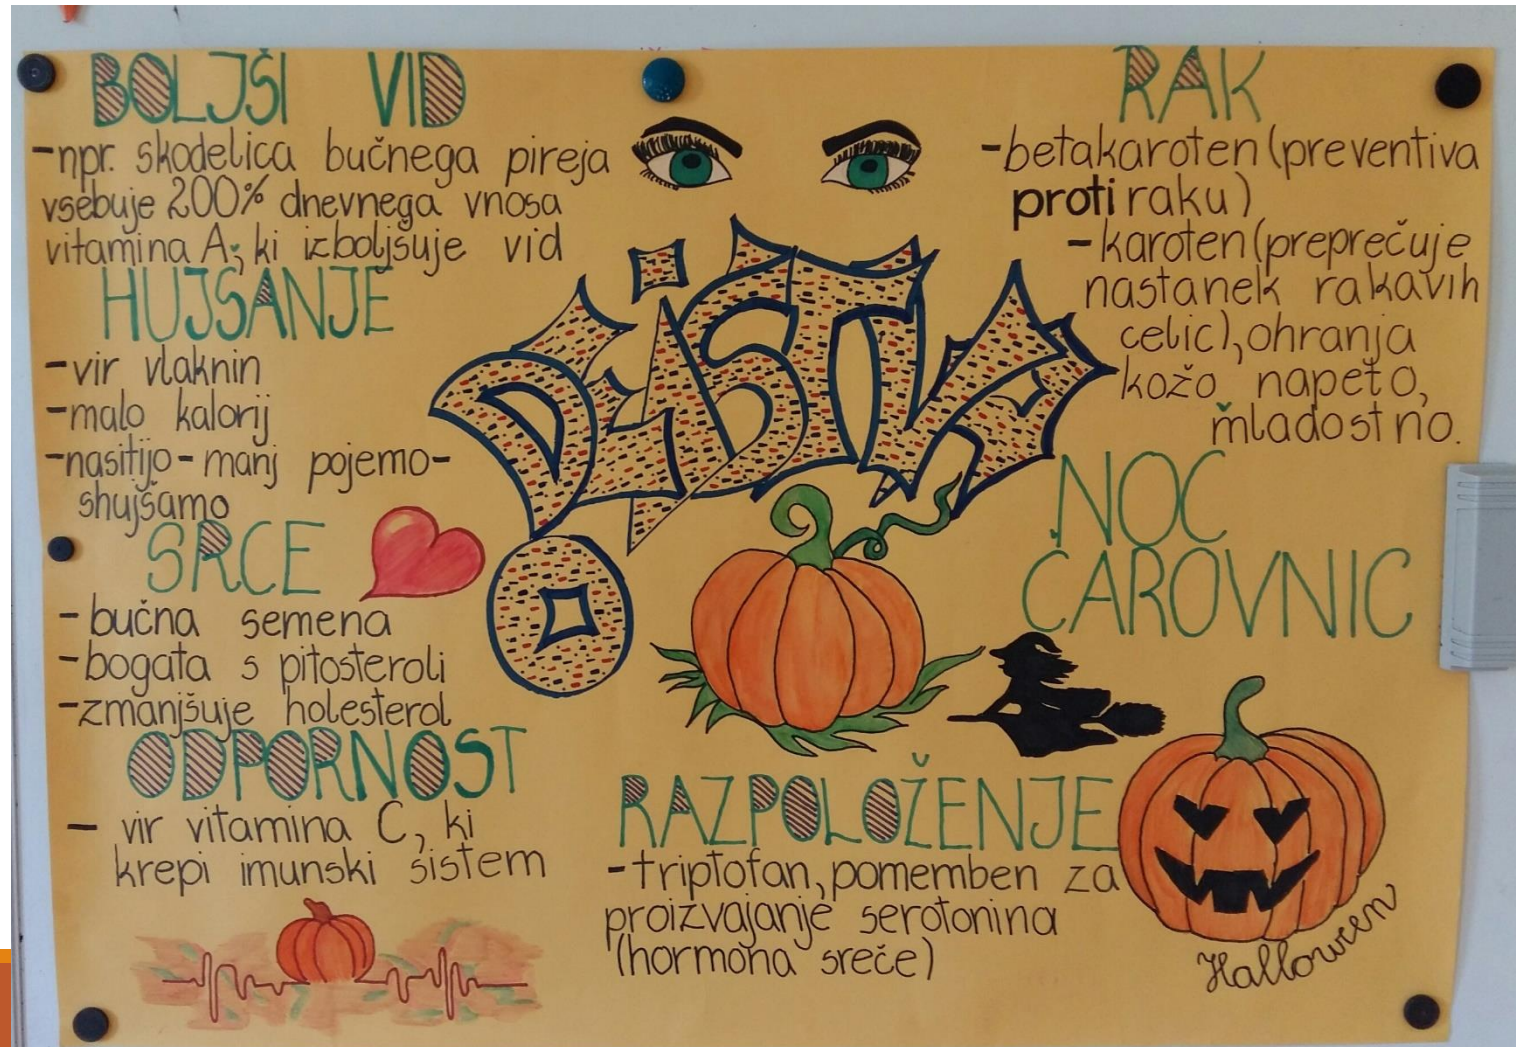 BOLJŠI VID
-npr. skodelica bučnega pireja
vsebuje 200% dnevnega vnosa
vitamina A, ki izboljšuje vid
HUJSANJE
-vir vlaknin
-malo kalorij
-nasitijo-manj pojemo-
shujšamo
SRCE
-bučna semena
-bogata s pitosteroli
-zmanjšuje holesterol
ODPORNOST
- vir vitamina C, ki
krepi imunski sistem
DEjSTVA
O
RAK
-betakaroten (preventiva
proti raku)
-karoten (preprečuje
nastanek rakavih
celic), ohranja
kožo napeto,
mladostno.
NOC
ČAROVNIC
RAZPOLOŽENJE
-triptofan, pomemben za
proizvajanje serotonina
(hormona sreče)
Halloween